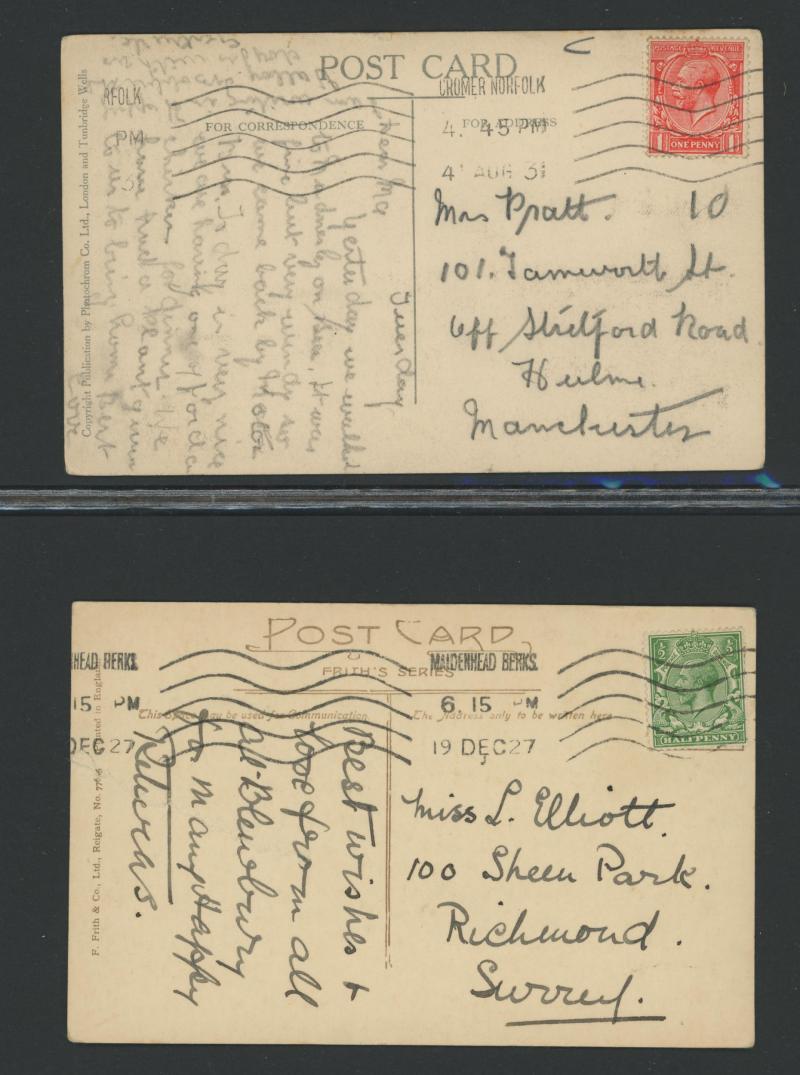 POST CARD
FOR CORRESPONDENCE
FOR ADDRESS
Copyright Publication by Photochrom Co. Ltd., London and Tunbridge Wells
RFOLK
PM
3
CROMER NORFOLK
4. 45 PM
4 AUG 31
POSTAGE REVENUE
1 ONE PENNY 1
Tuesday
Dear Ma
Yesterday we walked
on Sea. It was
fine but very windy so
we came back by Motor
Tues. To day is very nice
we are having one of
chicken for dinner. We
have had a
to us to bring home
Love
Mrs Pratt. 10
101. Tamworth St.
Off Stretford Road
Hulme.
Manchester
POST CARD
FRITH'S SERIES
This space may be used for Communication
The Address only to be written here
F. Frith & Co., Ltd., Reigate, No. Printed in England
HEAD BERKS.
15 PM
DEC 27
MAIDENHEAD BERKS.
6. 15 PM
19 DEC 27
1/2 1/2
HALFPENNY
Best wishes +
love from all
at Blewbury
for Many Happy
Returns.
Miss L. Elliott.
100 Sheen Park.
Richmond.
Surrey.